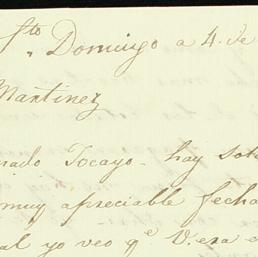 Sto. Domingo a 4. de
Martinez
nado Tocayo - hay
muy apreciable fecha
al yo veo qe V. era